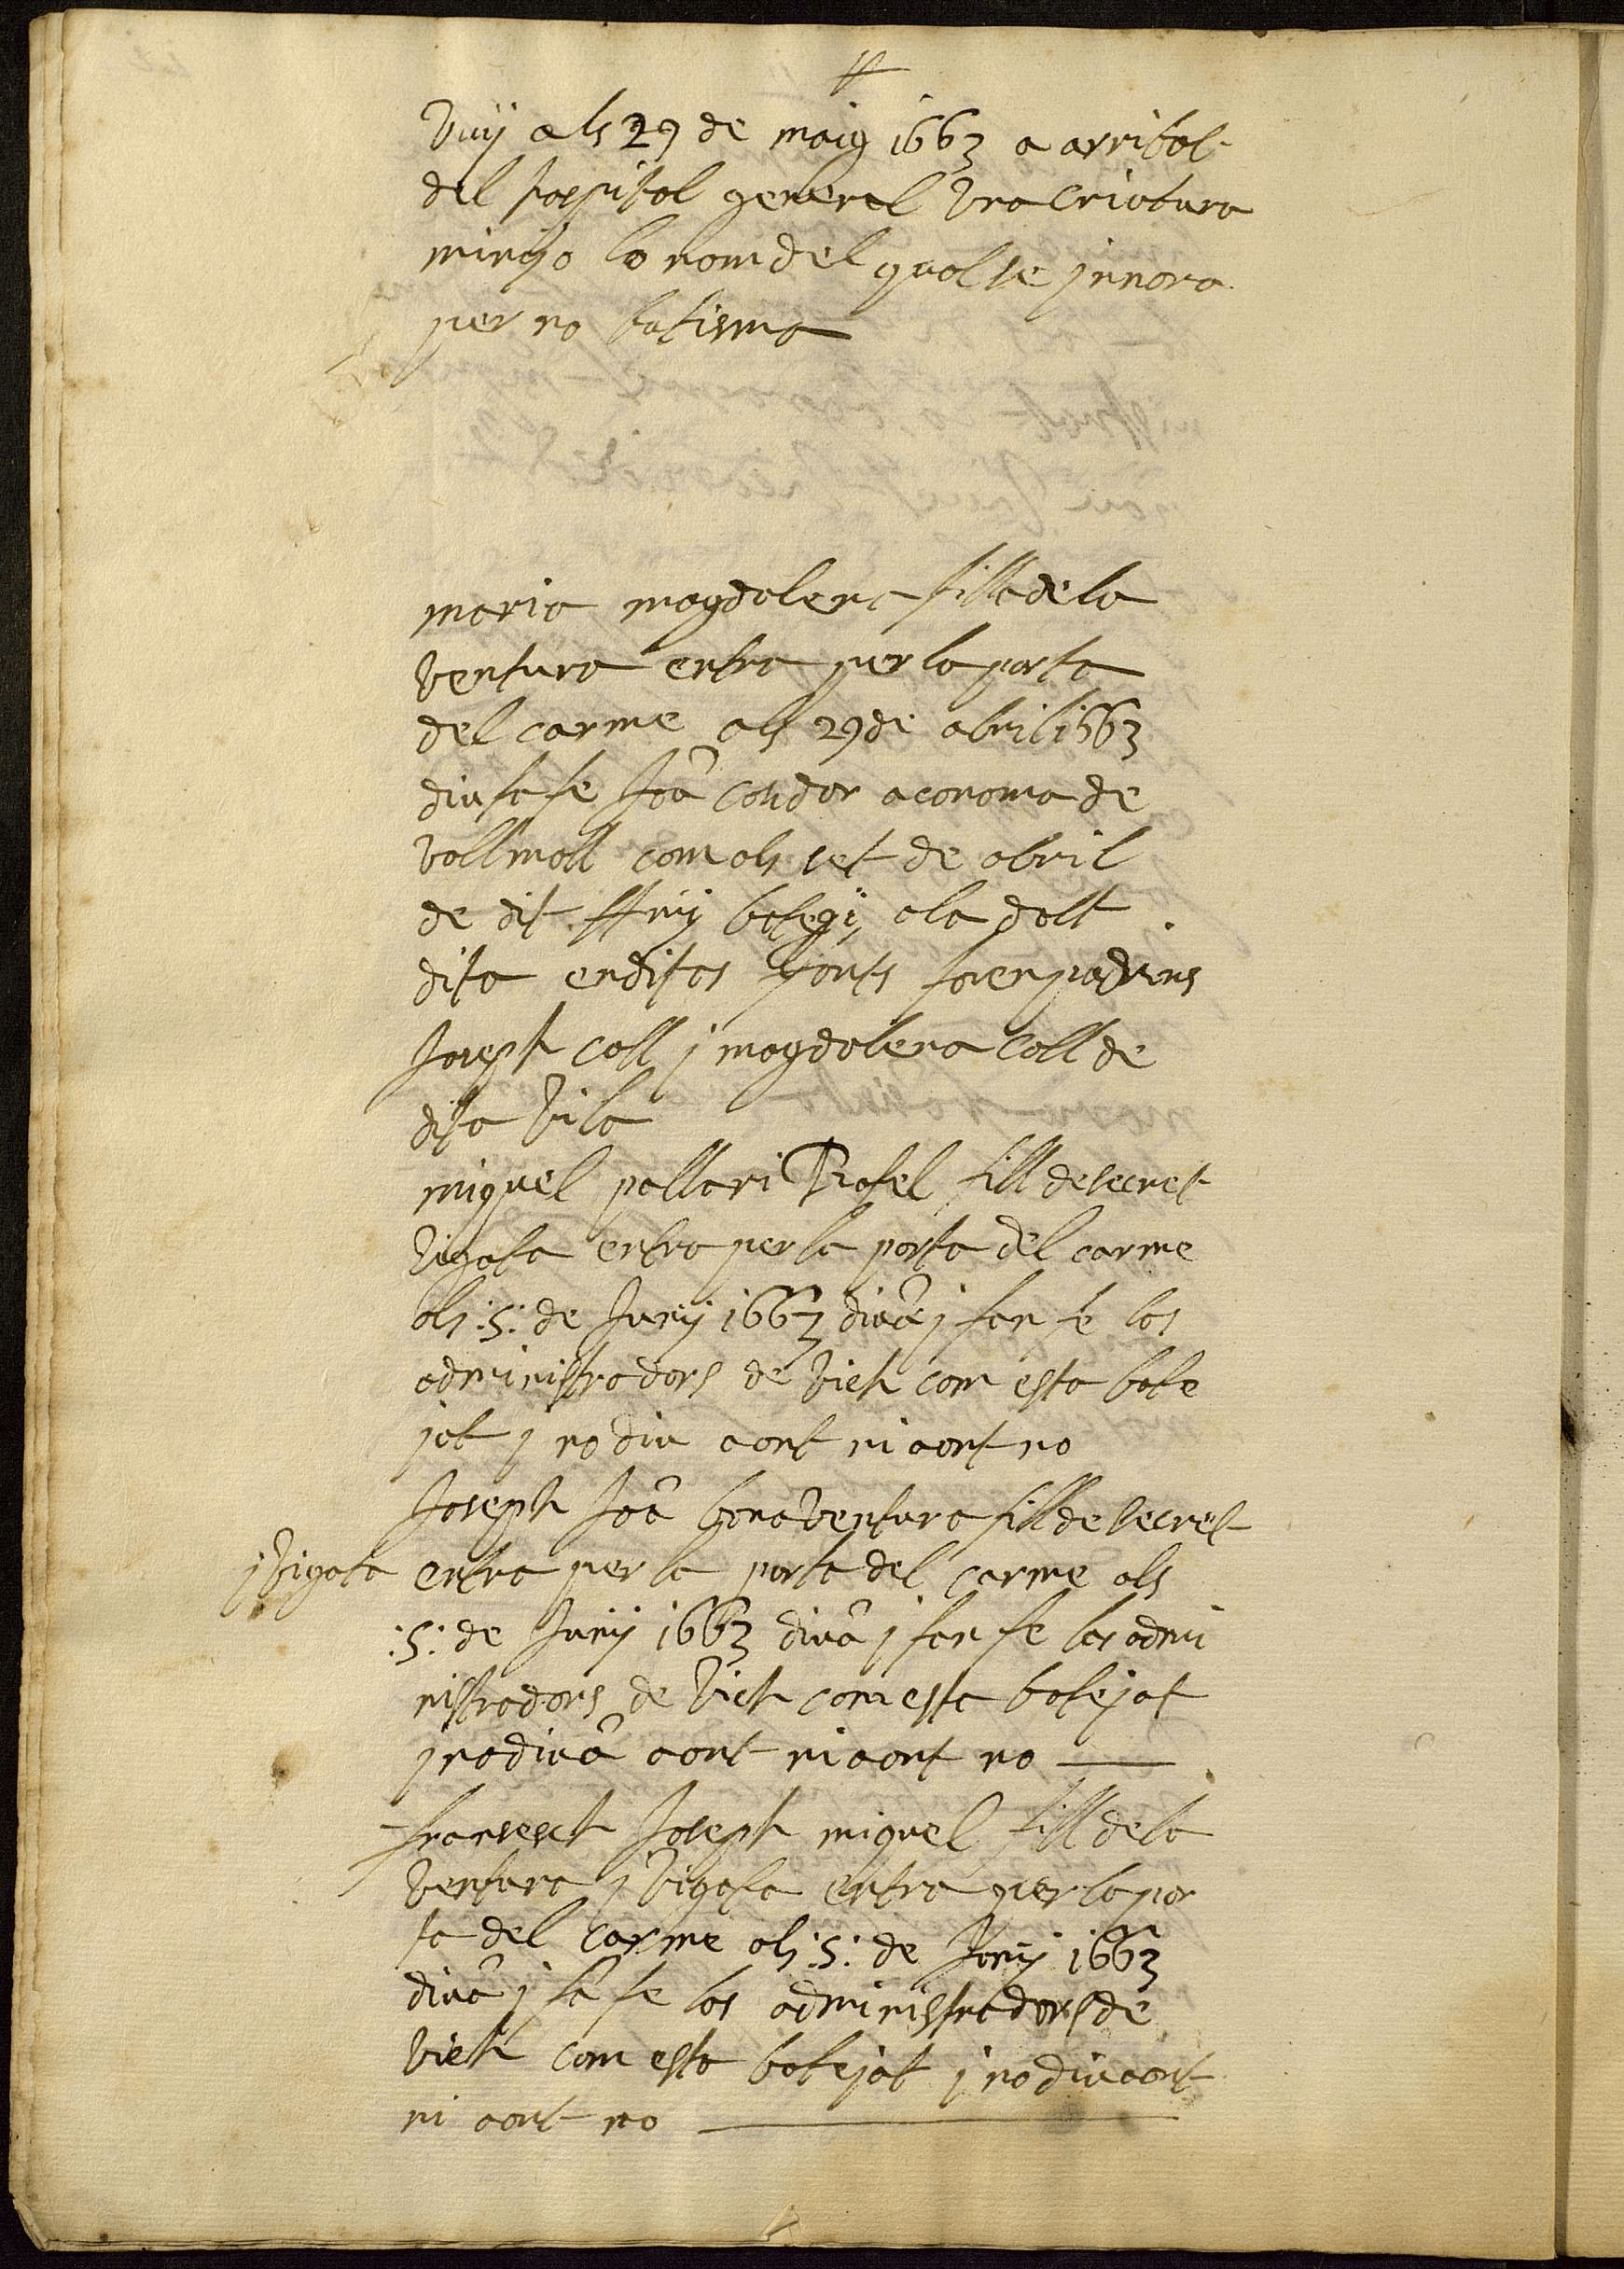 Vuÿ als 29 de maig 1663 a arribat
del hospital general vna criatura
minyo lo nom del qual se jnnora
per no batisma
maria magdalena filla de la
ventura entra per la porta
del carme als 29 de abril 1663
diu fa fe Joâ condor aconoma de
vallmoll com als set de abril
de dit bategi a la dalt
dita en ditas fonts foren padrins
Joseph coll j magdalena Coll de
dita vila
miquel pallari Rafel fill de secret
vigata entra per la porta del carme
als :5: de Junÿ 1663 diuâ j fan fe los
administradors de vich com esta bate
jat j no diu aont ni aont no
Joseph Joâ bonaventura fill de secret
j vigata entra per la porta del carme als
:5: de Junÿ 1663 diuâ j fan fe los admi
nistradors de vich com esta batejat
j no diuâ aont ni aont no
fransesch Joseph miquel fill de la
ventura j vigata entra per la por
ta del carme als :5: de Junÿ 1663
diuâ j fâ fe los administradors de
vich com esta batejat j no diu aont
ni aont no